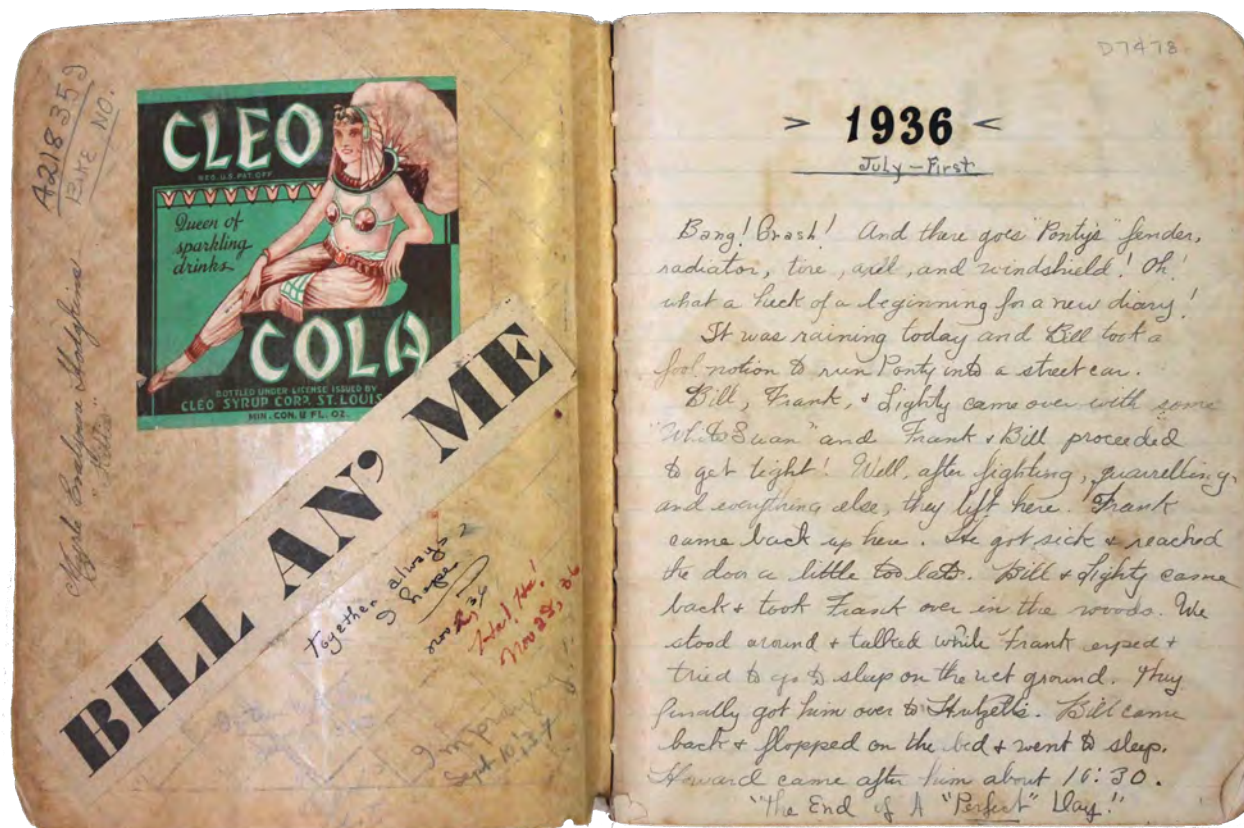 A218359
BIKE NO.
CLEO
REG. U.S. PAT. OFF.
Queen of
sparkling
drinks
COLA
BOTTLED UNDER LICENSE ISSUED BY
CLEO SYRUP CORP. ST. LOUIS
MIN. CON. 12 FL. OZ.
Myrle Hodgkins
BILL AN' ME
together always
I hope
Nov 36
Ha! Ha!
Nov 22, 36
I'm praying!
Sept 10 '37
D7478
> 1936 <
July - First
Bang! Crash! And there goes "Ponty's" fender,
radiator, tire, axil, and windshield! Oh!
what a heck of a beginning for a new diary!
It was raining today and Bill took a
fool notion to run Ponty into a street car.
Bill, Frank, & Lighty came over with some
"White Swan" and Frank & Bill proceeded
to get tight! Well, after fighting, quarrelling,
and everything else, they left here. Frank
came back up here. He got sick & reached
the door a little too late. Bill & Lighty came
back & took Frank over in the woods. We
stood around & talked while Frank erped &
tried to go to sleep on the wet ground. They
finally got him over to Hutzell's. Bill came
back & flopped on the bed & went to sleep.
Howard came after him about 10:30.
"The End of A "Perfect" Day!"